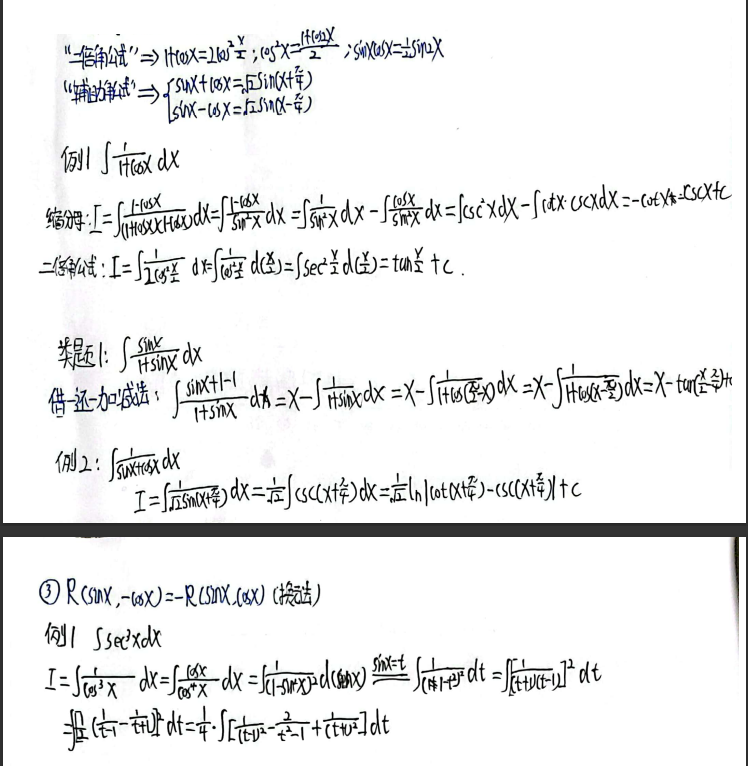 "二倍角公式"⇒ 1+cosx=2cos²x/2 ; cos²x=(1+cos2x)/2 ; sinxcosx=1/2 sin2x
"辅助角公式"⇒ { sinx+cosx=√2sin(x+π/4)
sinx-cosx=√2sin(x-π/4)
例1 ∫ 1/(1+cosx) dx
缩分母: I=∫ (1-cosx)/((1+cosx)(1-cosx)) dx=∫ (1-cosx)/sin²x dx=∫ 1/sin²x dx-∫ cosx/sin²x dx=∫csc²xdx-∫cotx·cscxdx=-cotx+cscx+c
二倍角公式: I=∫ 1/(2cos²x/2) dx=∫ 1/(cos²x/2) d(x/2)=∫sec²x/2 d(x/2)=tan x/2 +c.
类题1: ∫ sinx/(1+sinx) dx
借一还一加减法: ∫ (sinx+1-1)/(1+sinx) dx=x-∫ 1/(1+sinx) dx=x-∫ 1/(1+cos(π/2-x)) dx=x-∫ 1/(1+cos(x-π/2)) dx=x-tan(x/2-π/4)+c
例2: ∫ 1/(sinx+cosx) dx
I=∫ 1/(√2sin(x+π/4)) dx=1/√2 ∫csc(x+π/4)dx=1/√2 ln|cot(x+π/4)-csc(x+π/4)|+c
③ R(sinx,-cosx)=-R(sinx,cosx) (换元法)
例1 ∫sec³xdx
I=∫ 1/cos³x dx=∫ cosx/cos⁴x dx=∫ 1/(1-sin²x)² d(sinx) sinx=t ∫ 1/(1-t²)² dt=∫[1/((t+1)(t-1))]² dt
=∫[1/2(1/(t-1)-1/(t+1))]² dt=1/4·∫[1/(t-1)²-2/(t²-1)+1/(t+1)²]dt